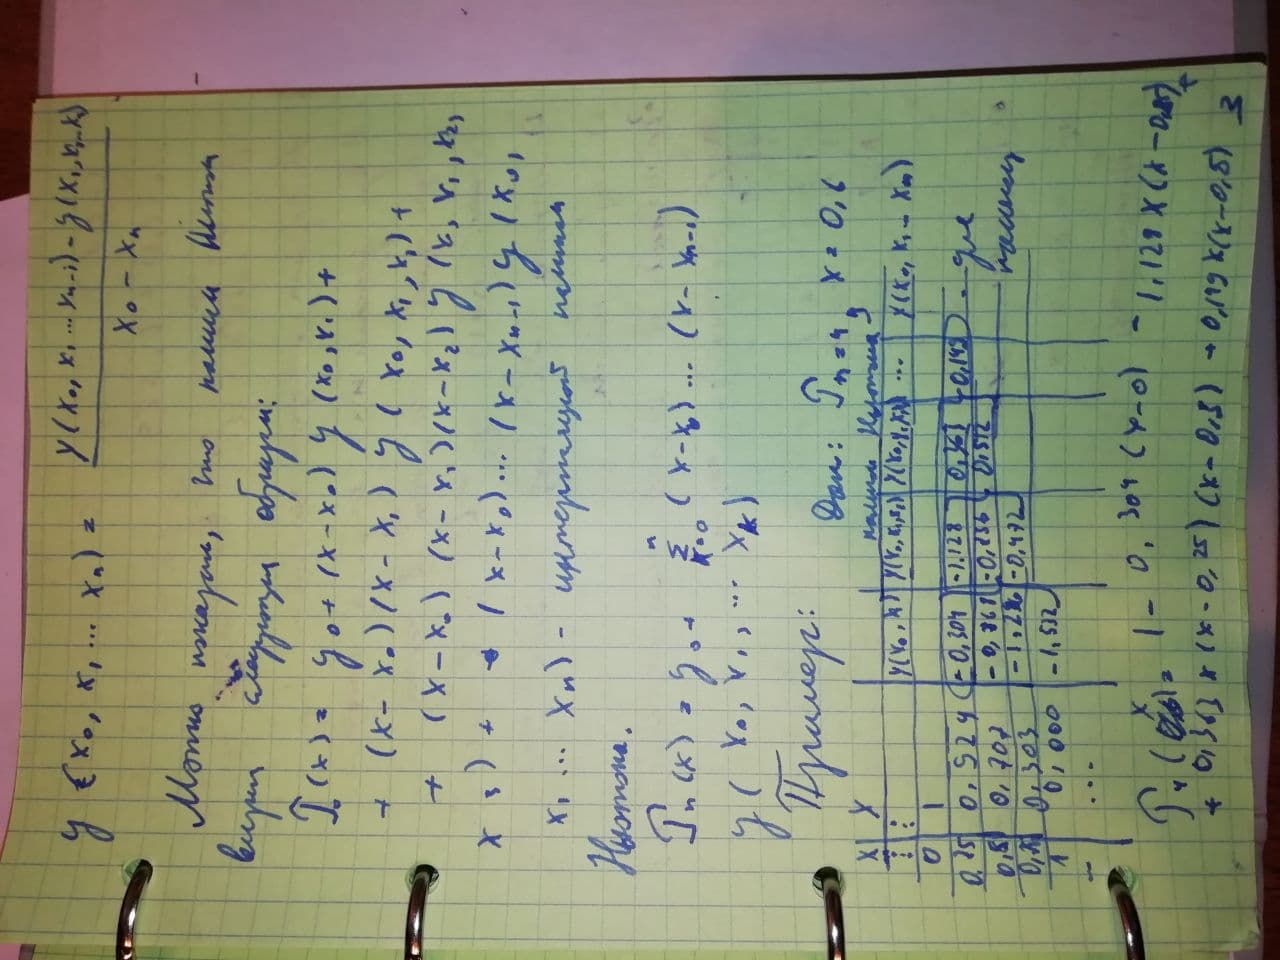 y (x₀, x₁ ... xₙ) = (y(x₀, x₁ ... xₙ₋₁) - y(x₁, x₂ ... xₙ)) / (x₀ - xₙ)
Можно показать, что полином
следующим образом:
P (x) = y₀ + (x-x₀) y (x₀, x₁) +
+ (x - x₀)(x - x₁) y (x₀, x₁, x₂) +
+ (x - x₀) (x - x₁)(x - x₂) y (x, x₁, x₂,
x ₃) + (x - x₀) ... (x - xₙ₋₁) y (x₀,
x₁ ... xₙ) - полином
Ньютона.
Pₙ(x) = y₀ + Σ (x-x₀) ... (x - xₙ₋₁)
y ( x₀, x₁, ... xₖ)
Пример:
Дано: Pₙ₌₄, x = 0,6
полином Ньютона
x X y(x₀, x₁) y(x₀, x₁, x₂) ... y(x₀, x₁ ... xₙ)
0 1
0,25 0,924 -0,304 -1.128 0,363 0,149 - для
0,5 0,707 -0,868 -0,856 0,512
0,303 -0,472
1 0,000 -1,532
- ...
P₄ (x) = 1 - 0,304 (x-0) - 1,128 x (x - 0,25) +
+ 0,363 x (x - 0,25) (x - 0,5) + 0,149 x(x-0,5) 3